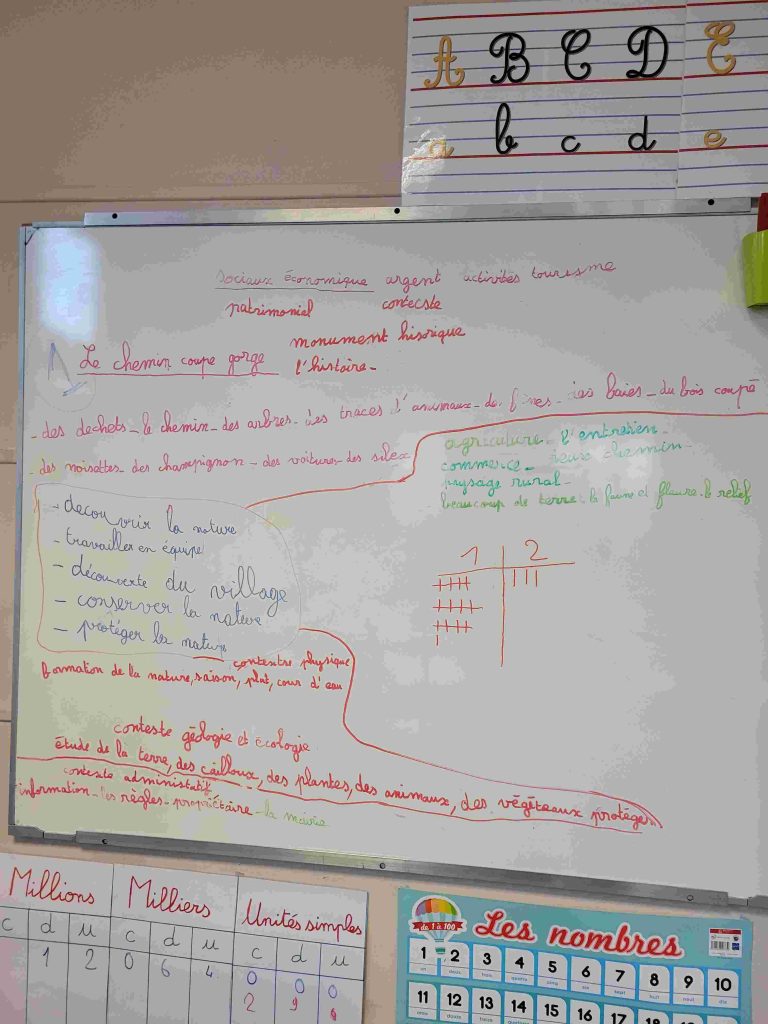 A B C D E
a b c d e
Sociaux économique argent activités tourisme
patrimoniel contecste
monument hisorique
Le chemin coupe gorge l'histoire-
- des dechets - le chemin - des arbres - des traces d'animaux - de - des baies - du bois coupé
- des noisettes - des champignon - des voitures - des silex
agriculture - l'entretien -
commerce - chemin -
paysage rural -
beaucoup de terre - la faune et flaure - le relief
- decouvrir la nature
- travailler en équipe
- découverte du village
- conserver la nature
- protéger la nature
1 2
contextre physique
formation de la nature, saison, plat, cour d'eau
conteste géologie et écologie
étude de la terre, des cailloux, des plantes, des animaux, des végéteaux protéger
conteste administatif
information - les règles - propriétaire - la mairie
Millions Milliers Unités simples
c d u c d u c d u
1 2 0 6 4 0 0 0
2 9
de 1 à 100
Les nombres
1 2 3 4 5 6 7 8 9 10
un deux trois quatre cinq six sept huit neuf dix
11 12 13 14 15 16 17 18